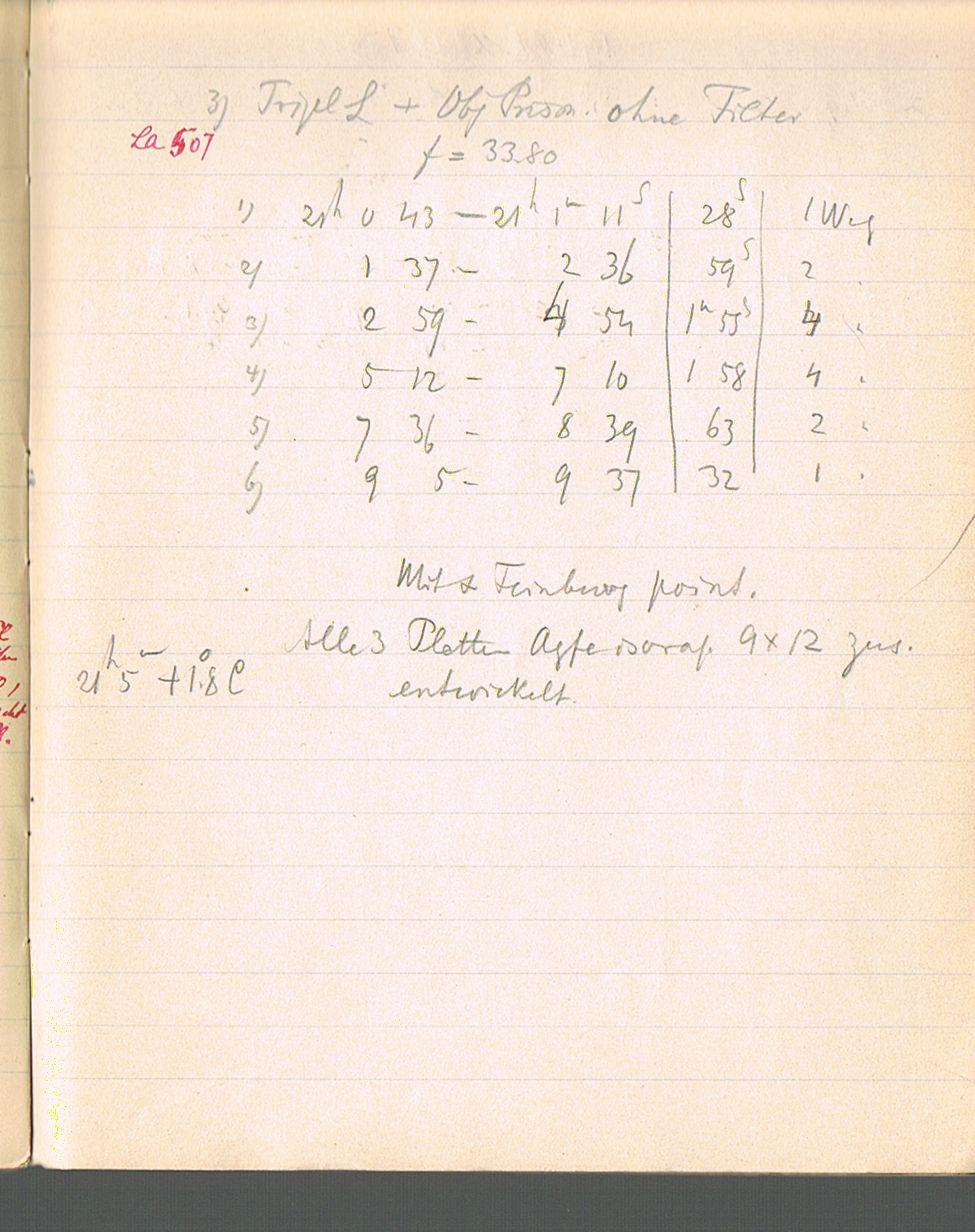 3) Tripel L + Obj Prism. ohne Filter
La 507
f = 33.80
1) 21h 0 43 — 21h 1m 11s 28s 1 Weg
2) 1 37 - 2 36 59s 2 "
3) 2 59 - 4 54 1m 55s 4 "
4) 5 12 - 7 10 1 58 4 "
5) 7 36 - 8 39 63 2 "
6) 9 5 - 9 37 32 1 "
Mit α Feinbewg point.
Alle 3 Platten Agfa isorap. 9x12 zus.
21h 5m +1.8°C
entwickelt.